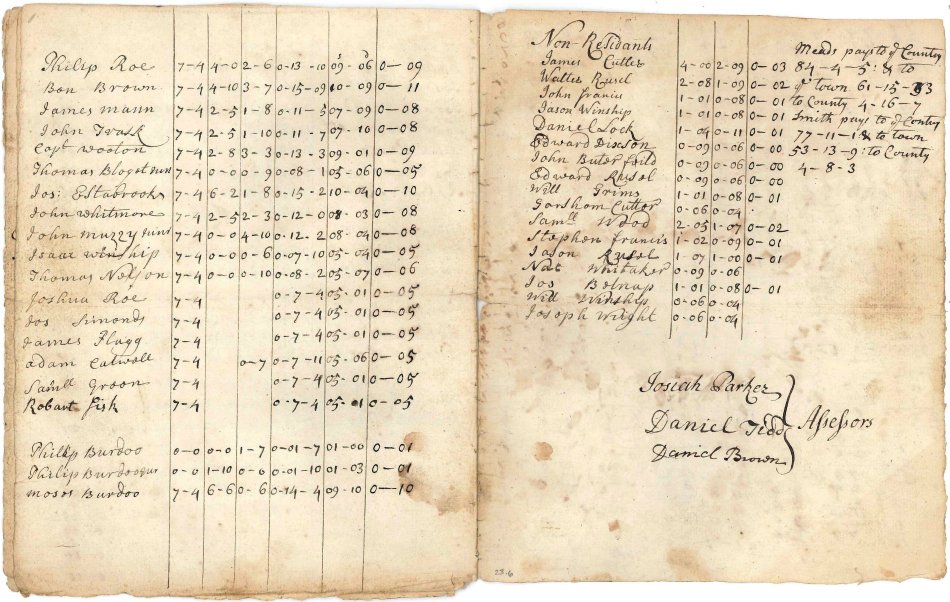 Philip Roe 7-4 4-0 2-6 0-13-10 09-06 0-09
Ben Brown 7-4 4-10 3-7 0-15-09 10-09 0-11
James mann 7-4 2-5 1-8 0-11-5 07-09 0-08
John Trask 7-4 2-5 1-10 0-11-7 07-10 0-08
Capt wooton 7-4 2-8 3-3 0-13-3 09-01 0-09
Thomas Blogget 7-4 0-0 0-9 0-08-1 05-06 0-05
Jos: Estabrook 7-4 6-2 1-8 0-15-2 10-04 0-10
John whitmore 7-4 2-5 2-3 0-12-0 08-03 0-08
John muzzy junr 7-4 0-0 4-10 0-12-2 08-04 0-08
Isaac winship 7-4 0-0 0-6 0-07-10 05-04 0-05
Thomas Nelson 7-4 0-0 0-10 0-08-2 05-07 0-06
Joshua Roe 7-4 0-7-4 05-01 0-05
Jos Simonds 7-4 0-7-4 05-01 0-05
James Flagg 7-4 0-7-4 05-01 0-05
adam Catwell 7-4 0-7 0-7-11 05-06 0-05
Samll Green 7-4 0-7-4 05-01 0-05
Robart fisk 7-4 0-7-4 05-01 0-05
Phillip Burdoo 0-0 0-0 1-7 0-01-7 01-00 0-01
Philip Burdoo 0-0 1-10 0-0 0-01-10 01-03 0-01
moses Burdoo 7-4 6-6 0-6 0-14-4 09-10 0-10
Non-Residants
James Cutler 4-00 2-09 0-03
Walter Rusel 2-08 1-09 0-02
John francis 1-01 0-08 0-01
Jason Winship 1-01 0-08 0-01
Daniel Lock 1-04 0-11 0-01
Edward Dixson 0-09 0-06 0-00
John Buterfeild 0-09 0-06 0-00
Edward Rusel 0-09 0-06 0-00
Will Grims 1-01 0-08 0-01
Gorsham Cutter 0-06 0-04
Samll Wood 2-05 1-07 0-02
Stephen francis 1-02 0-09 0-01
Jason Rusel 1-07 1-00 0-01
Nat Whitaker 0-09 0-06
Jos Bolnap 1-01 0-08 0-01
Will Winship 0-06 0-04
Joseph Wright 0-06 0-04
Meads pays to ye County
84-4-5: & to
ye town 61-15-33
to County 4-16-7
Smith pays to ye Contry
77-11-1 & to town
53-13-9: to County
4-8-3
Josiah Parker
Daniel Tidd
Daniel Brown
Assessors
23-6